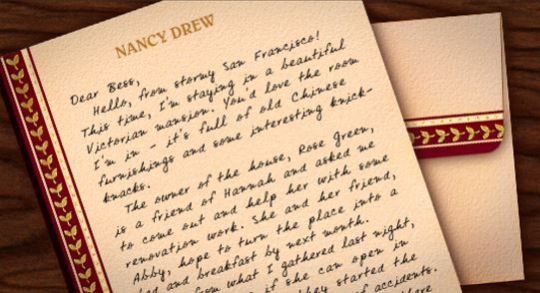 NANCY DREW
Dear Bess,
Hello, from stormy San Francisco!
This time, I'm staying in a beautiful
Victorian mansion. You'd love the room
I'm in - it's full of old Chinese
furnishings and some interesting knick-
knacks.
The owner of the house, Rose Green,
is a friend of Hannah and asked me
to come out and help her with some
renovation work. She and her friend,
Abby, hope to turn the place into a
bed and breakfast by next month.
from what I gathered last night,
if she can open in
started the
of accidents.